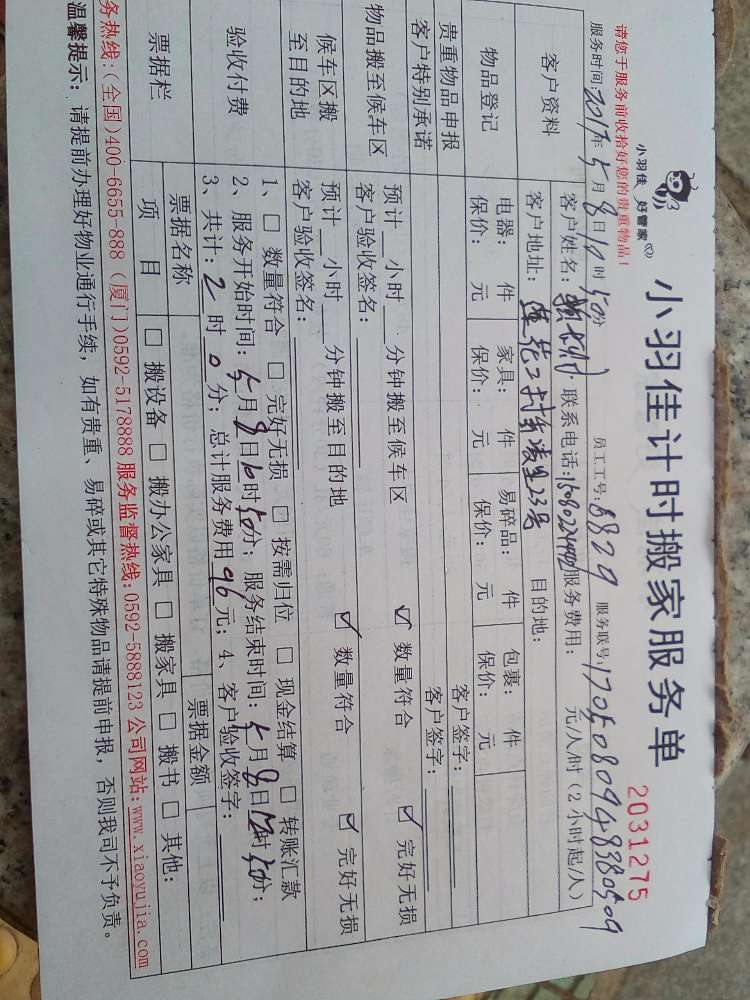 小羽佳 好管家
小羽佳计时搬家服务单
2031275
请您于服务前收拾好您的贵重物品！
员工工号：8829 服务联号：1705080948380509
服务时间：2017年5月8日10时50分
客户资料
客户姓名： 联系电话： 服务费用： 元/人/时（2小时起/人）
客户地址： 目的地：
物品登记
电器： 件 家具： 件 易碎品： 件 包裹： 件
保价： 元 保价： 元 保价： 元 保价： 元
贵重物品申报 客户签字：
客户特别承诺 客户签字：
物品搬至候车区
预计 小时 分钟搬至候车区 ☑ 数量符合 ☑ 完好无损
客户验收签名：
候车区搬至目的地
预计 小时 分钟搬至目的地 ☑ 数量符合 ☑ 完好无损
客户验收签名：
验收付费
1、□ 数量符合 □ 完好无损 □ 按需归位 □ 现金结算 □ 转账汇款
2、服务开始时间：5月8日10时50分；服务结束时间：5月8日12时50分；
3、共计：2时0分；总计服务费用96元；4、客户验收签字：
票据栏
票据名称 票据金额
项目 □ 搬设备 □ 搬办公家具 □ 搬家具 □ 搬书 □ 其他：
务热线：(全国)400-6655-888 (厦门)0592-5178888 服务监督热线：0592-5888123 公司网站：www.xiaoyujia.com
温馨提示：请提前办理好物业通行手续，如有贵重、易碎或其它特殊物品请提前申报，否则我司不予负责。